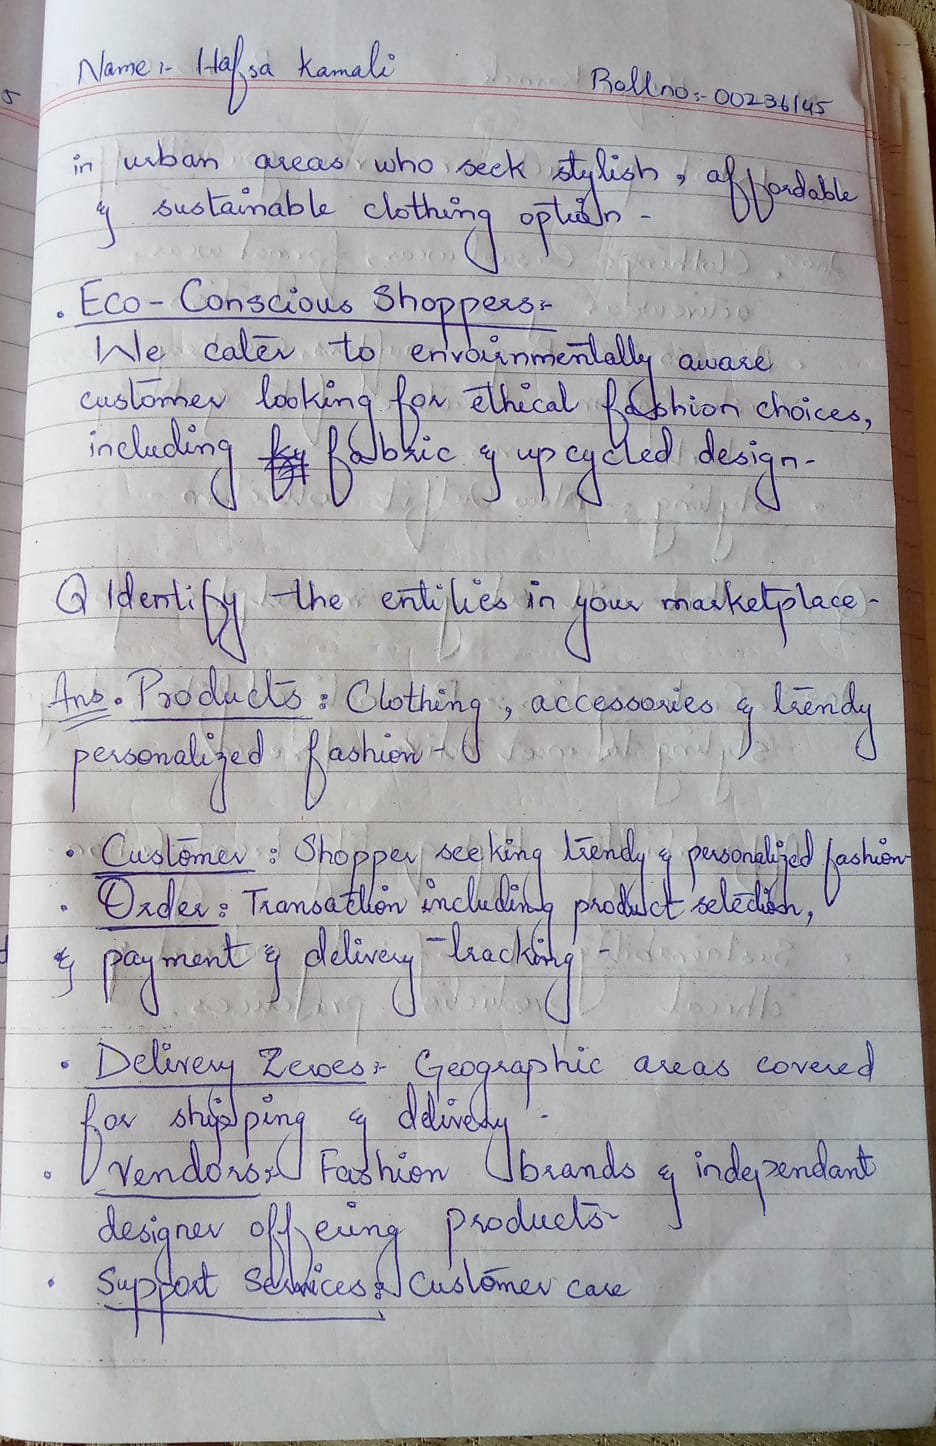 Name:- Hafsa Kamali
Roll no:- 00236145
in urban areas who seek stylish, affordable
& sustainable clothing option -
. Eco-Conscious Shoppers:-
We cater to envoirnmentally aware
customer looking for ethical fashion choices,
including fabric & upcycled design -
Q Identify the entities in your marketplace -
Ans. Products: Clothing, accessories & trendy
personalized fashion -
• Customer: Shopper seeking trendy & personalized fashion
• Order: Transaction including product selection,
& payment & delivery tracking -
• Delivery Zeroes:- Geographic areas covered
for shipping & delivery -
• Vendors:- Fashion brands & independant
designer offering products -
• Support Services: Customer care